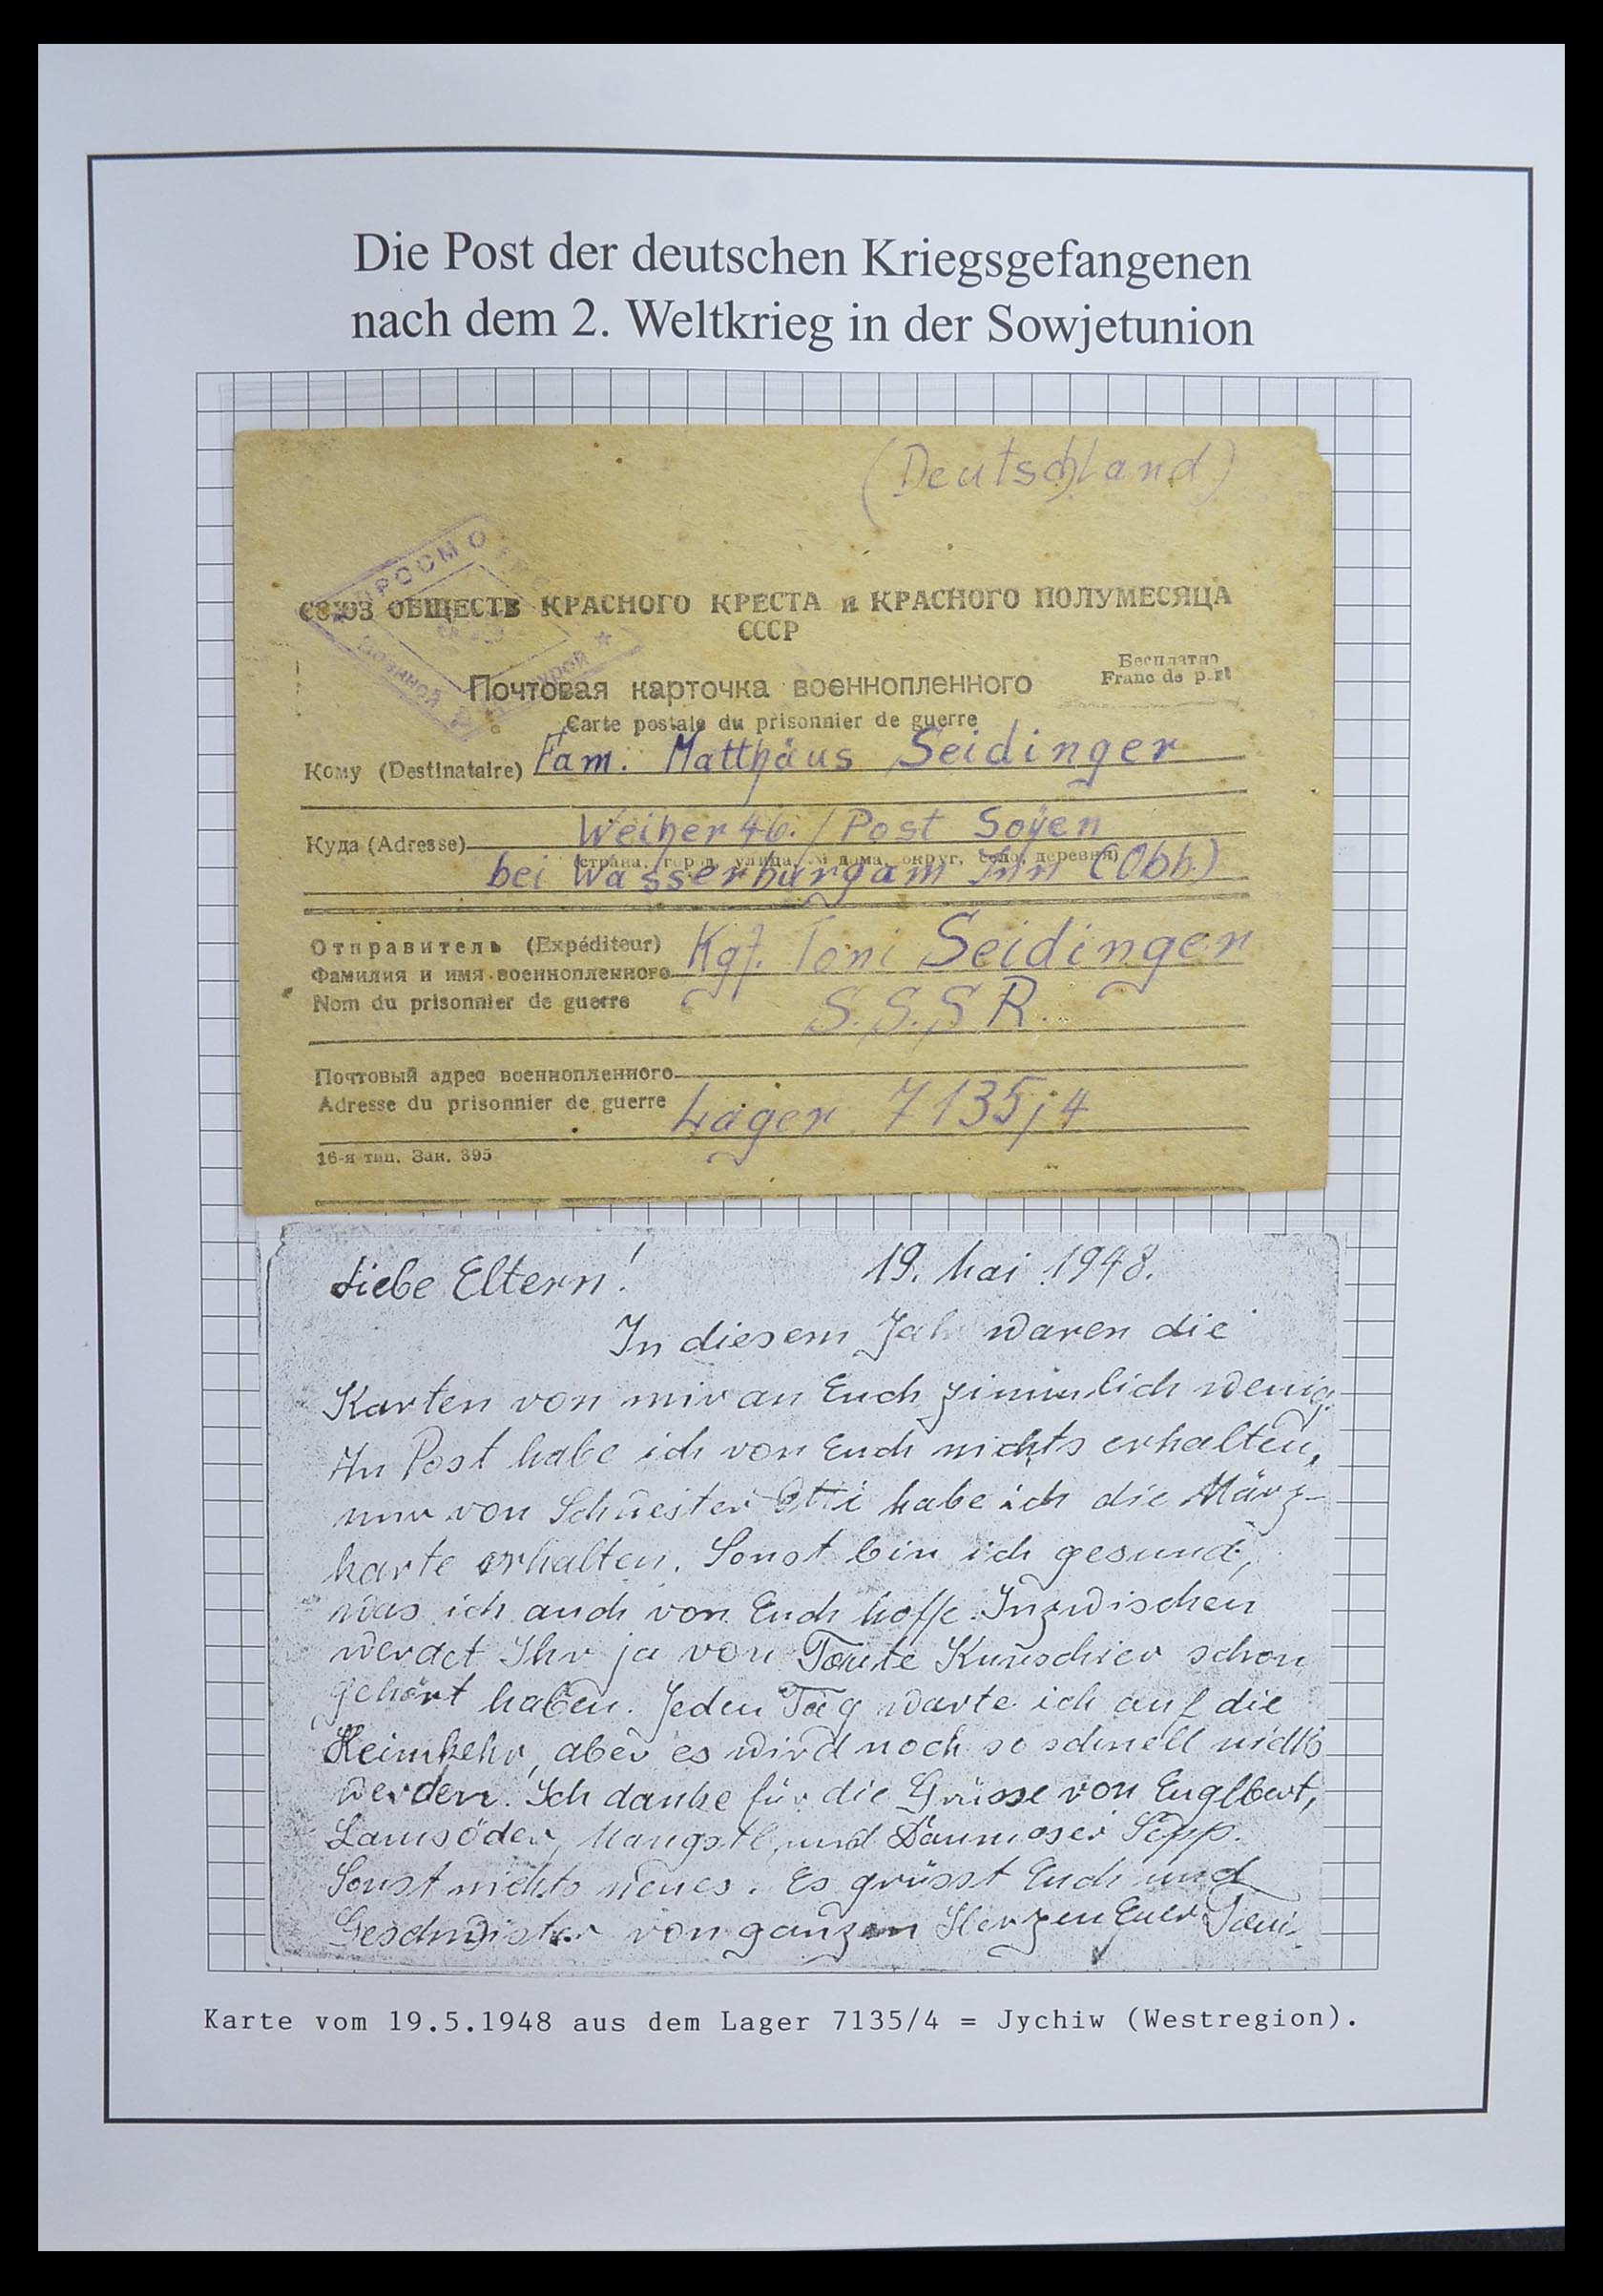 Die Post der deutschen Kriegsgefangenen
nach dem 2. Weltkrieg in der Sowjetunion
(Deutschland)
ПРОСМОТРЕНО
военной цензурой
СОЮЗ ОБЩЕСТВ КРАСНОГО КРЕСТА и КРАСНОГО ПОЛУМЕСЯЦА
СССР
Бесплатно
Franc de port
Почтовая карточка военнопленного
Carte postale du prisonnier de guerre
Кому (Destinataire) Fam. Matthäus Seidinger
Куда (Adresse) Weiher 46. / Post Soyen
(страна, город, улица, № дома, округ, село, деревня)
bei Wasserburg am Inn (Obb.)
Отправитель (Expéditeur) Kgf. Toni Seidinger
Фамилия и имя военнопленного
Nom du prisonnier de guerre S.S.S.R.
Почтовый адрес военнопленного
Adresse du prisonnier de guerre Lager 7135/4
16-я тип. Зак. 395
Liebe Eltern! 19. Mai 1948.
In diesem Jahr waren die
Karten von mir an Euch zimmlich wenig.
An Post habe ich von Euch nichts erhalten,
nur von Schwester habe ich die März-
karte erhalten. Sonst bin ich gesund,
was ich auch von Euch hoffe. Inzwischen
werdet Ihr ja von Tante schon
gehört haben. Jeden Tag warte ich auf die
Heimkehr, aber es wird noch so schnell nichts
werden. Ich danke für die Grüsse von Englbert,
und Sepp.
Sonst nichts neues. Es grüsst Euch und
Geschwister von ganzem Herzen Euer Toni.
Karte vom 19.5.1948 aus dem Lager 7135/4 = Jychiw (Westregion).